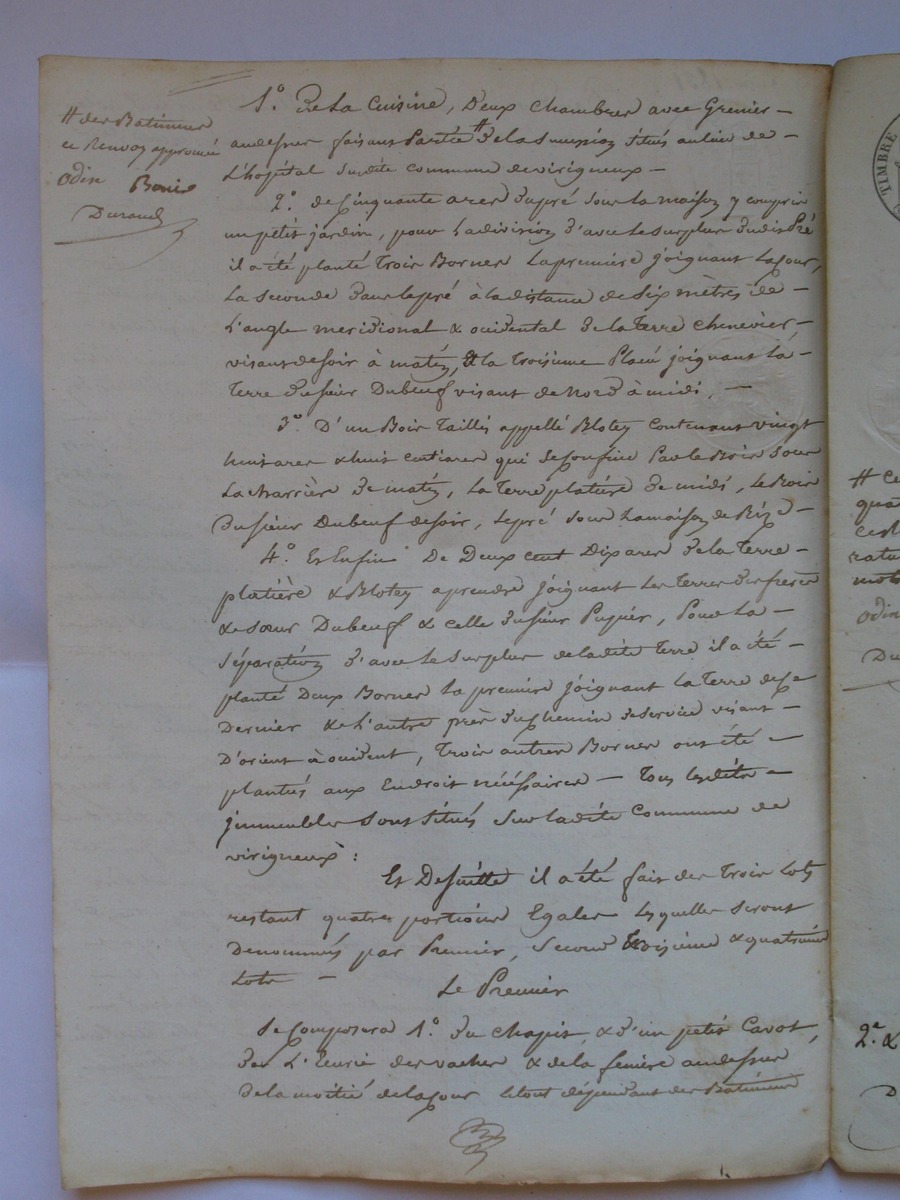 # des Batiments
ce Renvoy approuvé
Odin Bonie
Durand
1.° De La Cuisine, Deux chambres avec Grenier –
audessus faisans Partie # de la Succession Situés au lieu de –
L'hôpital Susdite commune de virigneux –
2.° de Cinquante ares du pré Sous la maison y compris
un petit jardin, pour La division d'avec le Surplus dudit Pré
il a été planté Trois Bornes La premiere joignant La Cour,
La seconde dans le pré à la distance de Six mètres de –
L'angle meridional & ocidental de la Terre chenevier –
visant de soir à matin, Et la troisieme Placé joignant la –
Terre du sieur Dubeuf visant de Nord à midi, –
3.° D'un Bois Taillis appellé Blotey contenant vingt
huit ares & huit centiares qui se Confine Par le Bois Sous
La charrière de matin, La Terre platière de midi, le Bois
du sieur Dubeuf de soir, le pré Sous La maison de Bize –
4.° Et Enfin De Deux cent Dix ares de la Terre –
platière & Blotey a prendre joignant Les Terres des freres
& Sœur Dubeuf & celle du sieur Pupier, Pour La –
Séparation d'avec le Surplus de ladite Terre il a été –
planté Deux Bornes La premiere joignant La Terre de ce
Dernier & L'autre près du Chemin de service visant –
D'orient à ocident, Trois autres Bornes ont été –
plantés aux Endroit nécéssaires – Tous lesdits –
jmmeubles Sont Situés Sur ladite Commune de
virigneux :
Et De suitte il a été fait des Trois Lots
restant quatres portions Egales Lesquelles Seront
Denommés par Premier, Second Troisieme & quatrieme
Lots –
Le Premier
Se Composera 1.° du chapit, & d'un petit Cavot,
de L'Ecurie des vaches & de la feniere audessus
de la moitié de la Cour Le tout dépendant des Batiments
TIMBRE
# Ce
qua
cest
ratu
mots
Odin
Du
2.e &
D